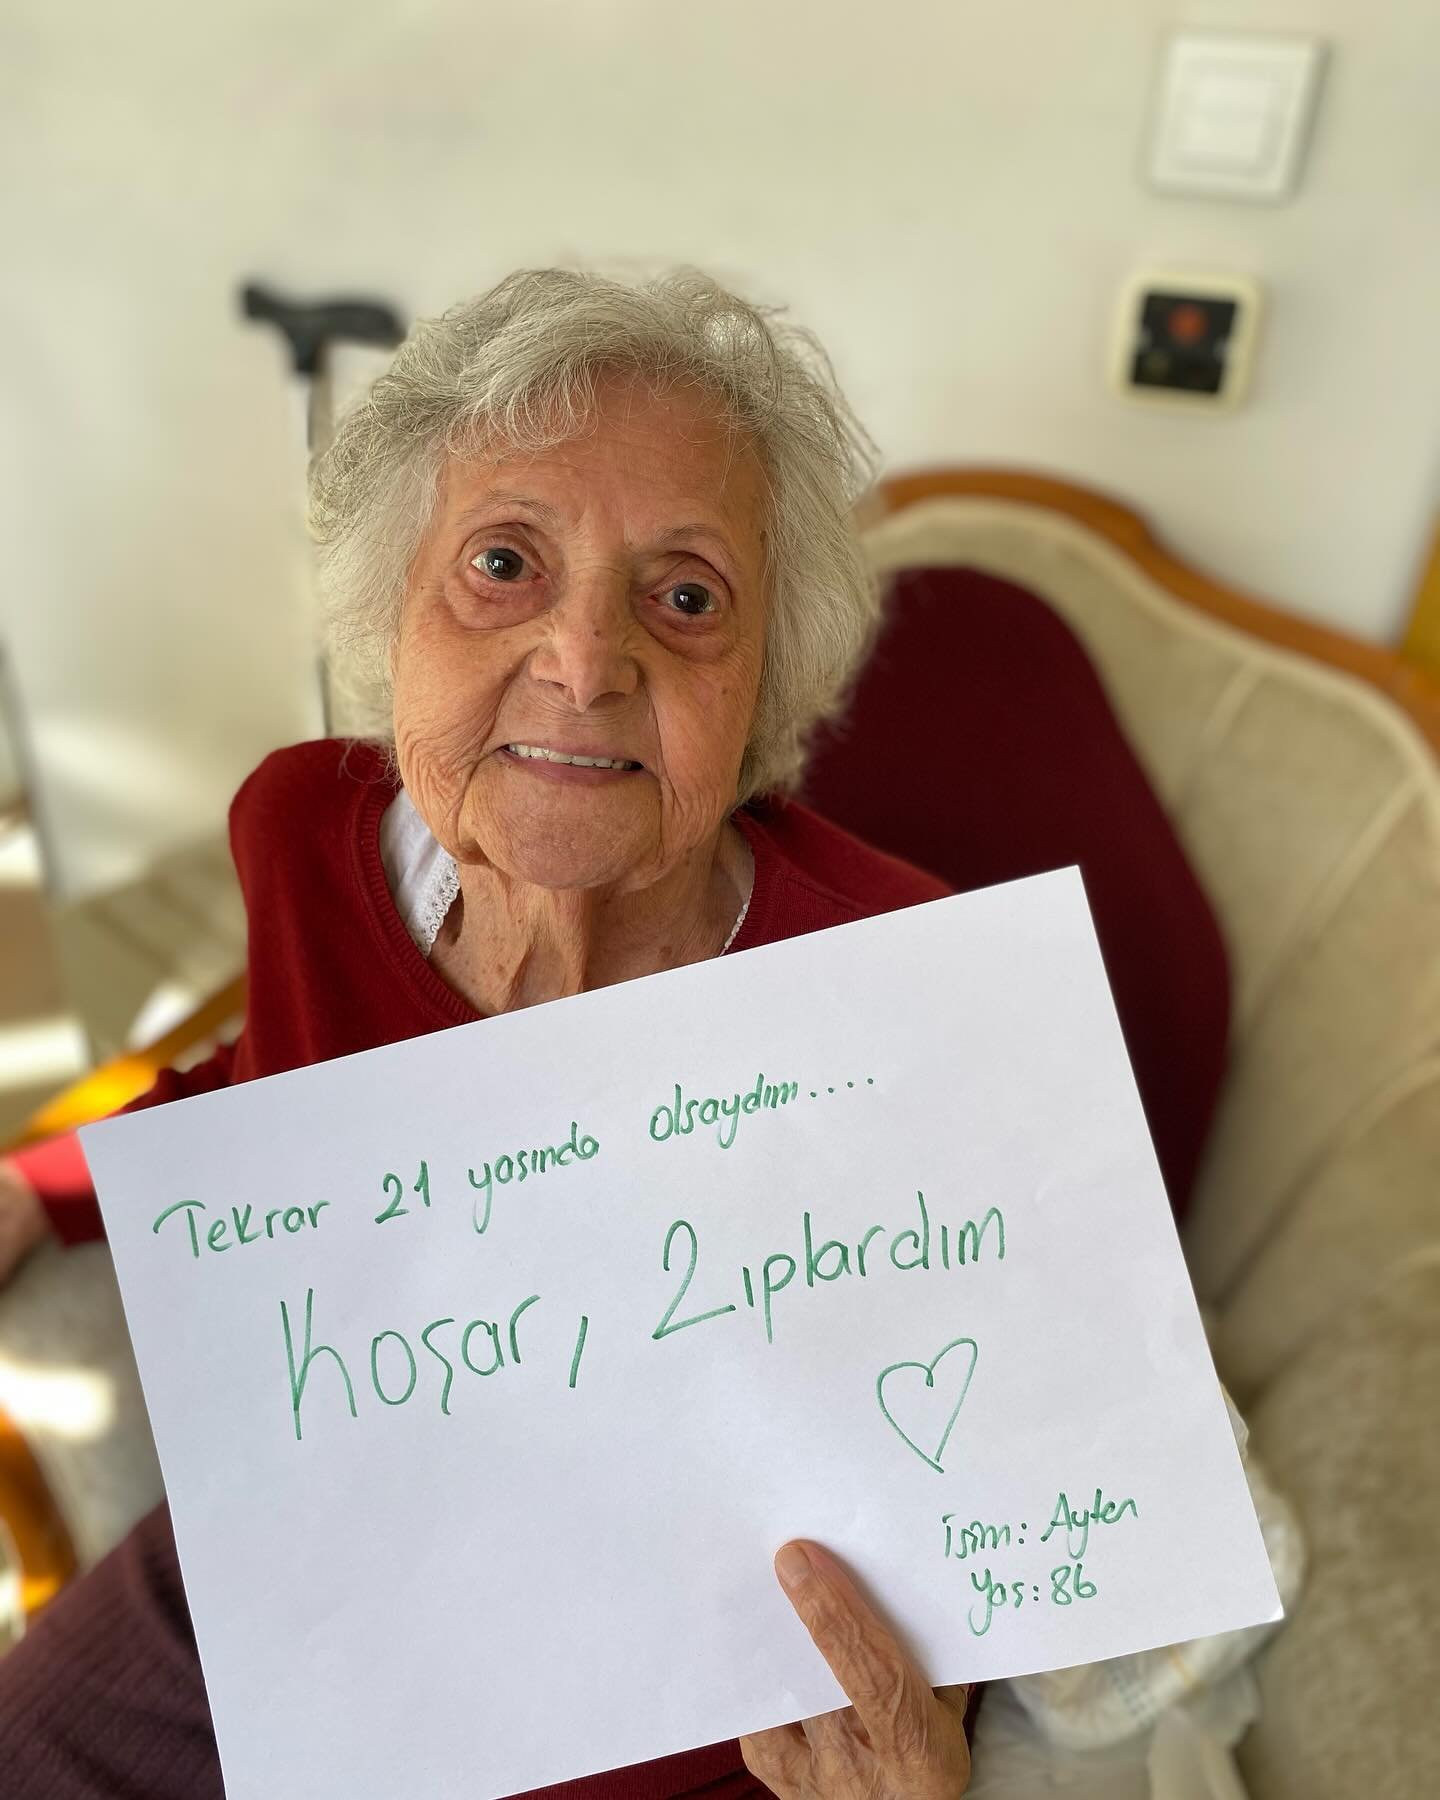 Tekrar 21 yaşında olsaydım....
Koşar, Zıplardım
İsim: Ayten
Yaş: 86